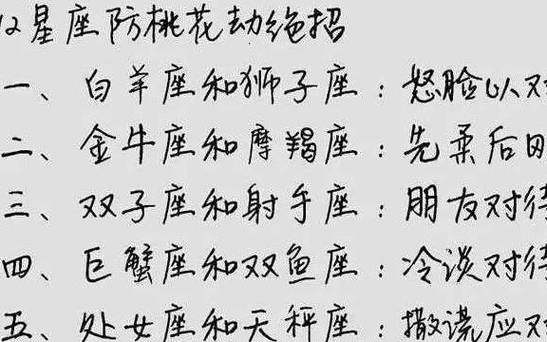 12星座防桃花劫绝招
一、白羊座和狮子座：怒脸以对
二、金牛座和摩羯座：先柔后
三、双子座和射手座：朋友对待
四、巨蟹座和双鱼座：冷淡对待
五、处女座和天秤座：撒谎应对